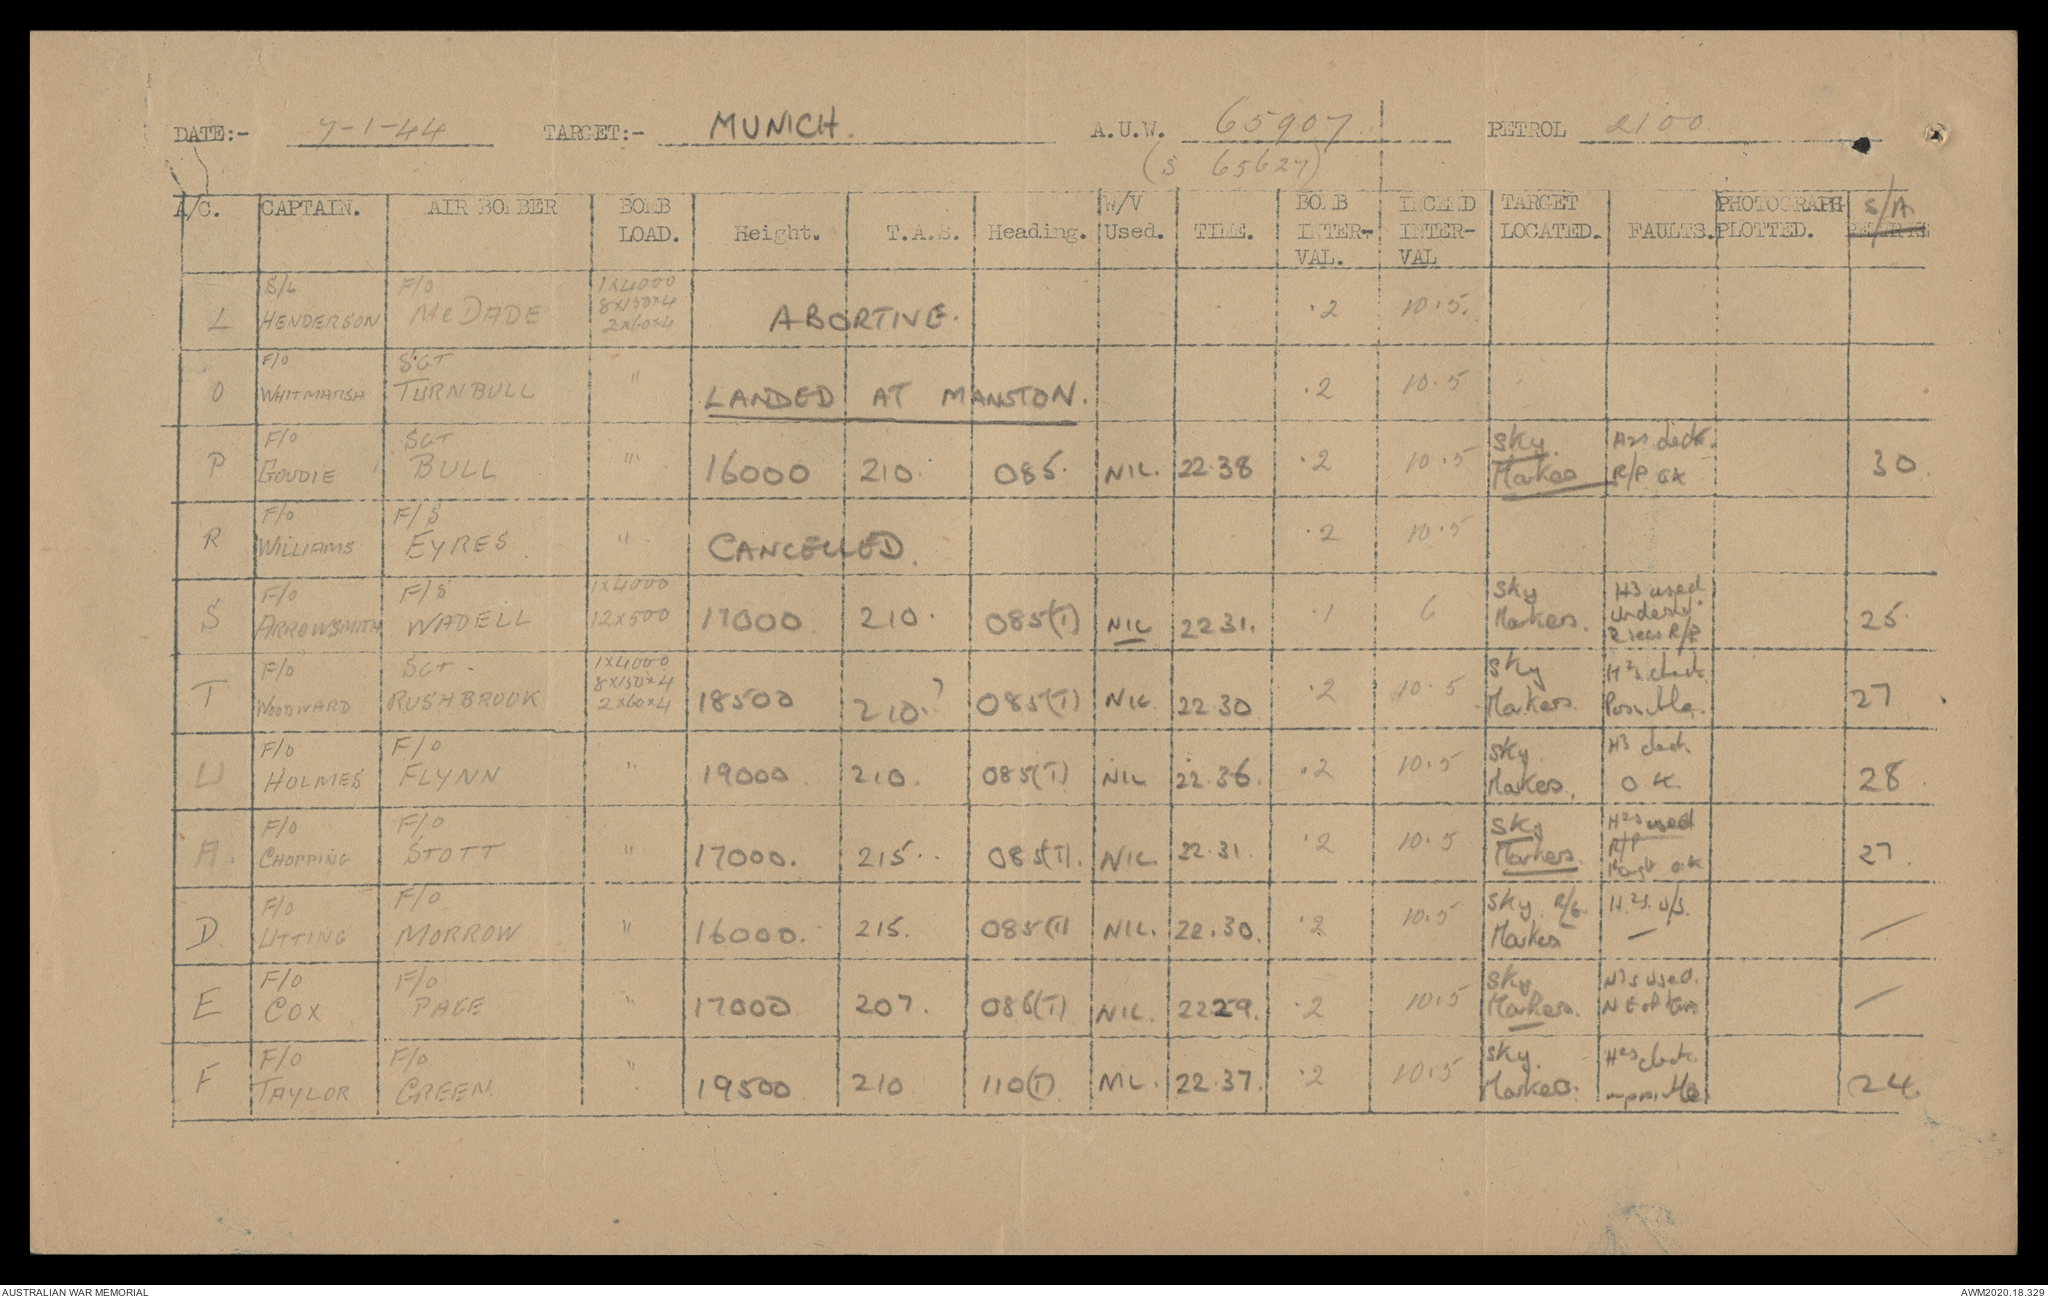 DATE:- 7-1-44 TARGET:- MUNICH. A.U.W. 65907 PETROL 2100
(S 65627)
A/C. CAPTAIN. AIR BOMBER BOMB LOAD. Height. T.A.S. Heading. W/V Used. TIME. BOMB INTER-VAL. INCEND INTER-VAL TARGET LOCATED. FAULTS. PHOTOGRAPH PLOTTED. S/A
L S/L HENDERSON F/O McDADE 1x4000 8x150x4 2x60x4 ABORTIVE. .2 10.5
O F/O WHITMARSH SGT TURNBULL " LANDED AT MANSTON. .2 10.5
P F/O GOUDIE SGT BULL " 16000 210. 085. NIL. 22.38 .2 10.5 Sky Markers R/P OK 30.
R F/O WILLIAMS F/S EYRES " CANCELLED. .2 10.5
S F/O ARROWSMITH F/S WADELL 1x4000 12x500 17000 210. 085(T) NIL 22 31. .1 6 Sky Markers. H2S used 2 secs R/P 25.
T F/O WOODWARD SGT RUSHBROOK 1x4000 8x150x4 2x60x4 18500 210.? 085(T) NIL. 22.30 .2 10.5 Sky Markers. H2S check Possible. 27
U F/O HOLMES F/O FLYNN " 19000 210. 085(T) NIL 22.36. .2 10.5 Sky Markers. check O.K. 28
A F/O CHOPPING F/O STOTT " 17000. 215.. 085(T). NIL. 22.31. .2 10.5 Sky Markers. H2S used R/P O.K 27.
D F/O UTTING F/O MORROW " 16000. 215. 085(T) NIL. 22.30. .2 10.5 Sky R/G Markers H.2S. U/S. — —
E F/O COX F/O PAGE " 17000 207. 086(T) NIL. 2229. .2 10.5 Sky Markers. H2S used. —
F F/O TAYLOR F/O GREEN. " 19500 210 110(T) NIL. 22.37. .2 10.5 Sky Markers. H2S check 24.
AUSTRALIAN WAR MEMORIAL AWM2020.18.329